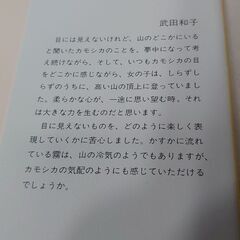 武田和子
目には見えないけれど、山のどこかにいる
と聞いたカモシカのことを、夢中になって考
え続けながら、そして、いつもカモシカの目
をどこかに感じながら、女の子は、しらずし
らずのうちに、高い山の頂上に登っていまし
た。柔らかな心が、一途に思い望む時、それ
は大きな力を生むのだと思います。
目に見えないものを、どのように楽しく表
現していくかに苦心しました。かすかに流れ
ている霧は、山の冷気のようでもありますが、
カモシカの気配のようにも感じていただける
でしょうか。